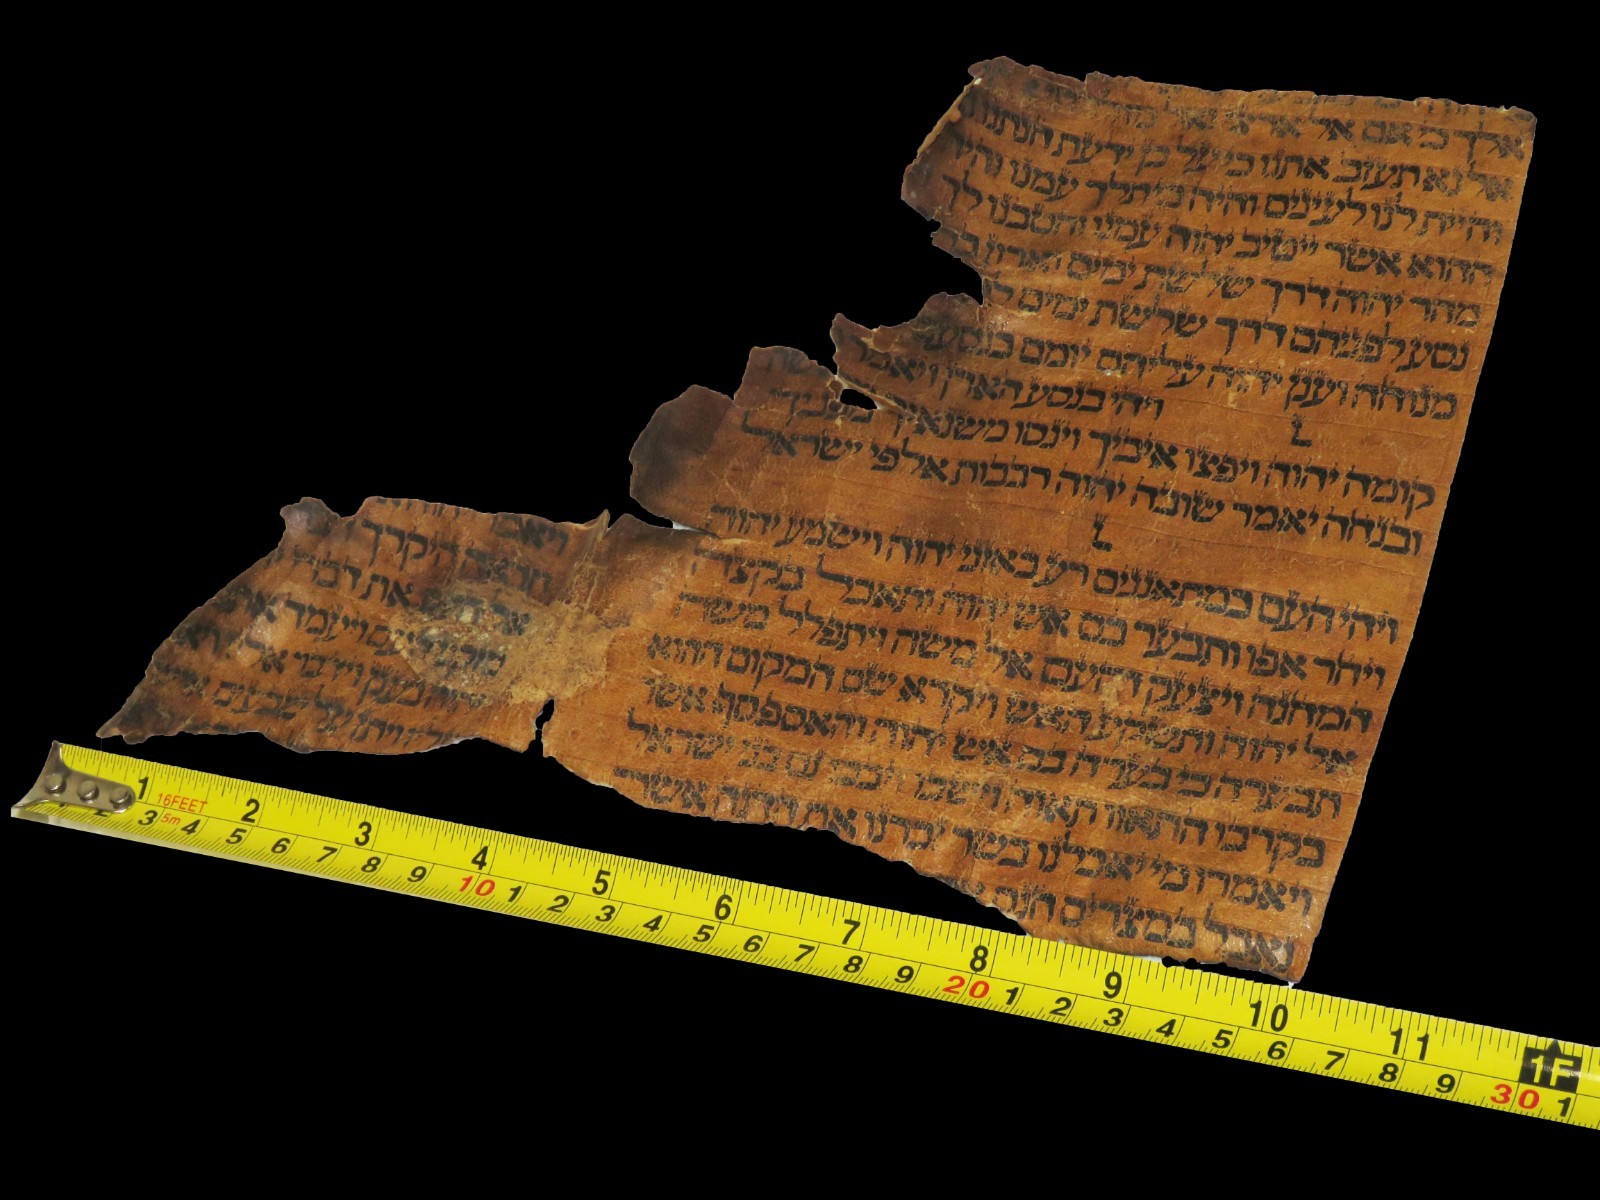 אלך כי אם אל ארצי ואל
אל נא תעזב אתנו כי על כן ידעת חנתנו
והיית לנו לעינים והיה כי תלך עמנו והיה
ההוא אשר ייטיב יהוה עמנו והטבנו לך
מהר יהוה דרך שלשת ימים וארון
נסע לפניהם דרך שלשת ימים
מנוחה וענן יהוה עליהם יומם בנסעם
׆ ויהי בנסע הארן ויאמר
קומה יהוה ויפצו איביך וינסו משנאיך מפניך
ובנחה יאמר שובה יהוה רבבות אלפי ישראל
׆
ויהי העם כמתאננים רע באזני יהוה וישמע יהוה
ויחר אפו ותבער בם אש יהוה ותאכל בקצה
המחנה ויצעק העם אל משה ויתפלל משה
אל יהוה ותשקע האש ויקרא שם המקום ההוא
תבערה כי בערה בם אש יהוה והאספסף אשר
בקרבו התאוו תאוה וישבו ויבכו גם בני ישראל
ויאמרו מי יאכלנו בשר זכרנו את הדגה אשר
נאכל במצרים חנם
ויאמר
היקרך
את דברי
ויעמד
בענן וידבר אל
על שבעים
1 2 3 4 5 6 7 8 9 10 11 1F
16FEET
5m
2 3 4 5 6 7 8 9 10 1 2 3 4 5 6 7 8 9 20 1 2 3 4 5 6 7 8 9 30 1